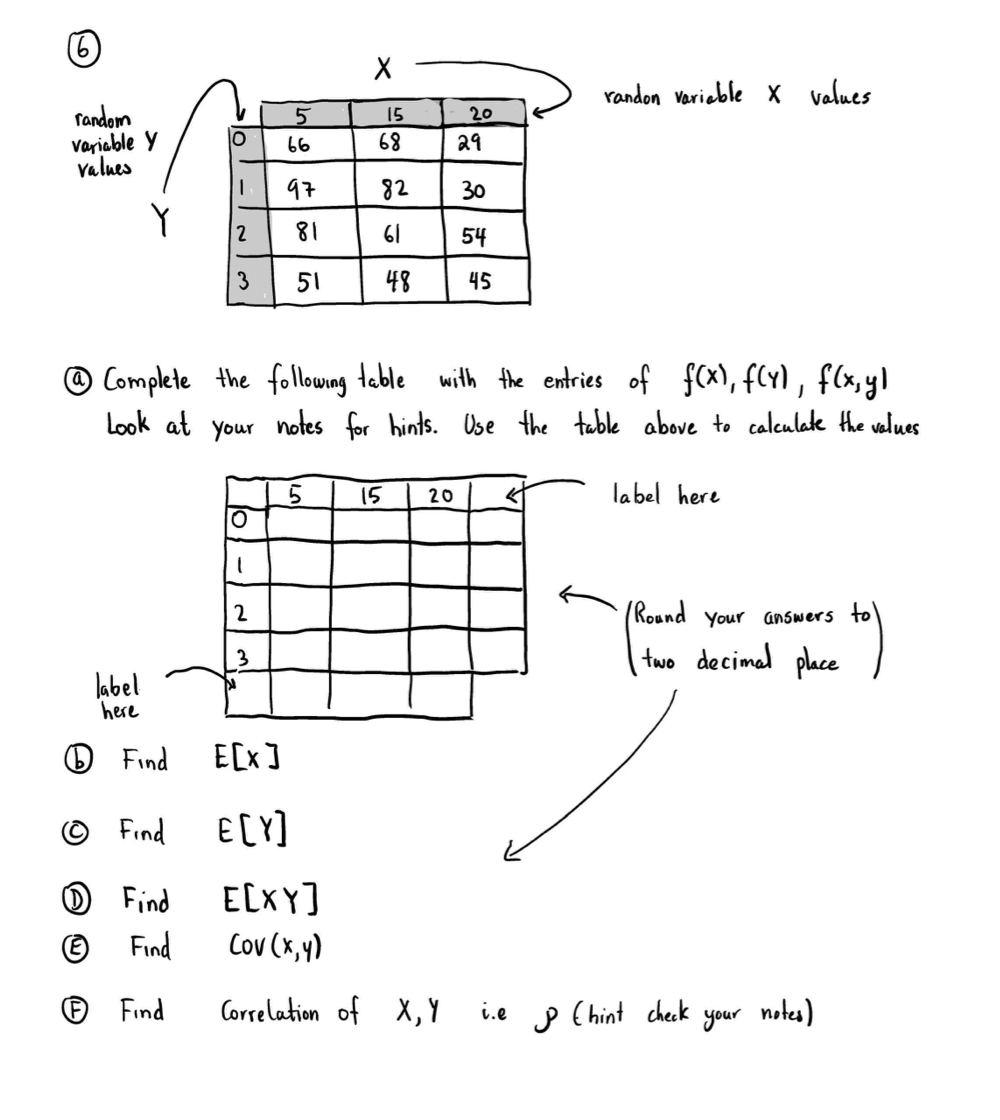 6
X
randon variable X values
random
variable Y
values
Y
5 15 20
0 66 68 29
1 97 82 30
2 81 61 54
3 51 48 45
a Complete the following table with the entries of f(X), f(Y), f(x,y)
Look at your notes for hints. Use the table above to calculate the values
5 15 20
label here
0
1
2
3
(Round your answers to
two decimal place)
label
here
b Find E[X]
C Find E[Y]
D Find E[XY]
E Find Cov(x,y)
F Find Correlation of X,Y i.e ρ (hint check your notes)